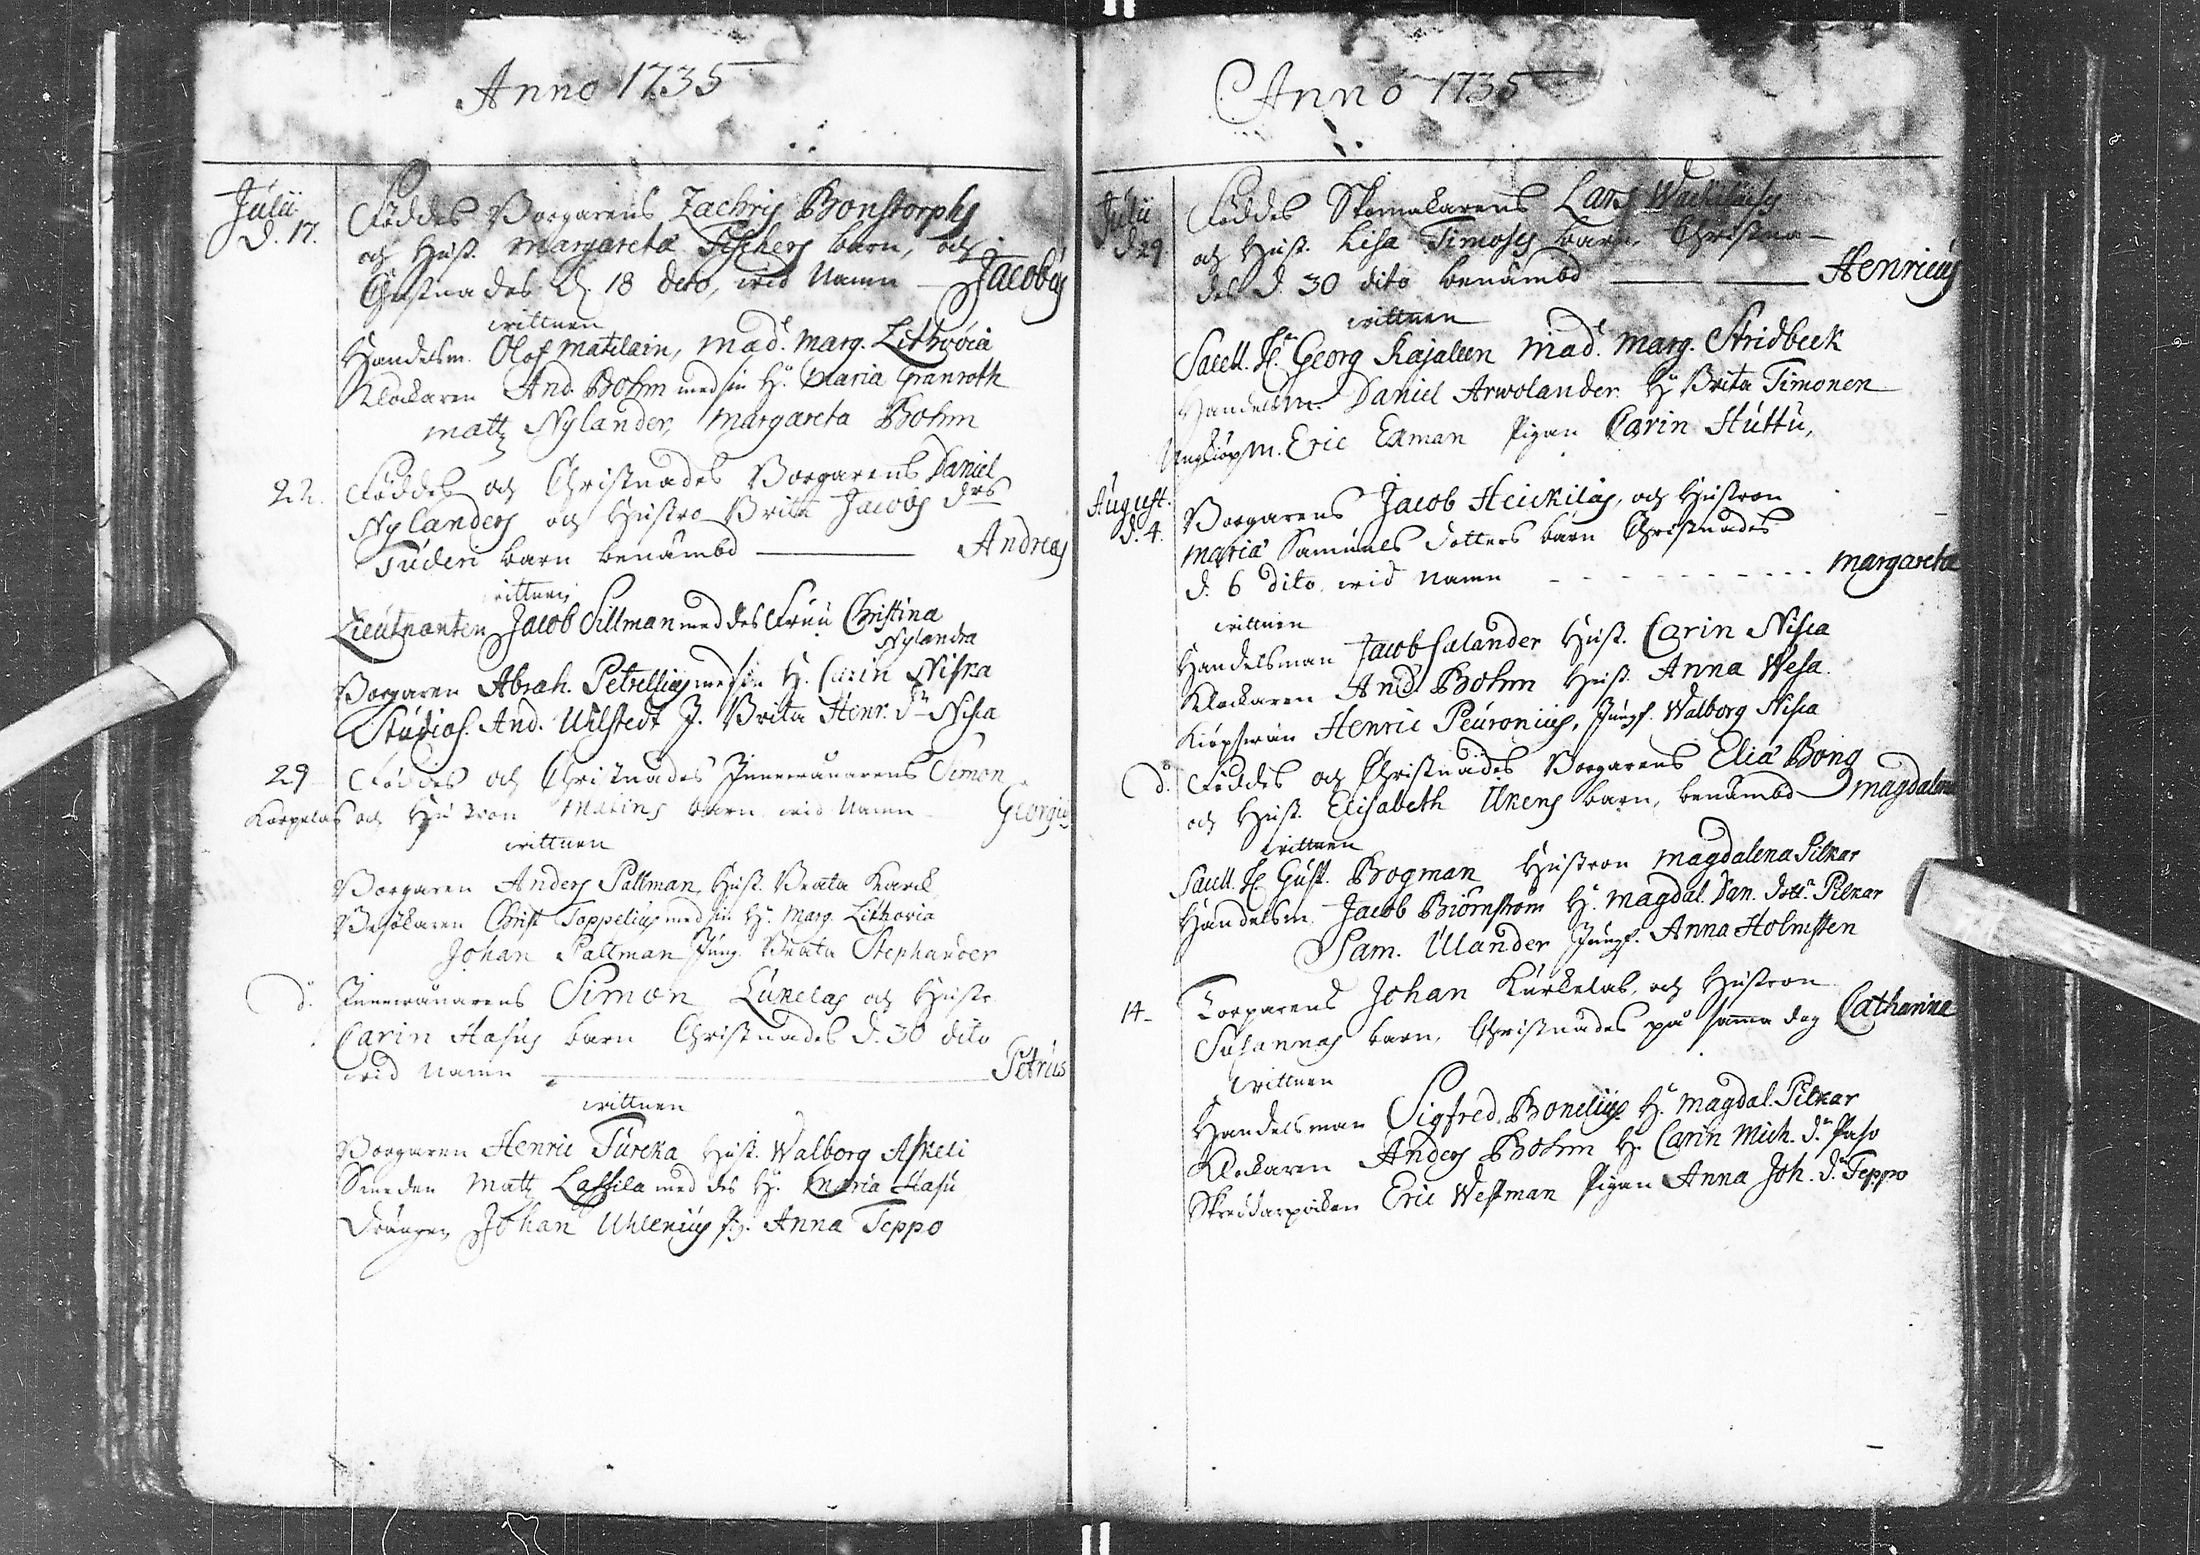 Anno 1735
Julii
d. 17.
Föddes Borgarens Zachris Bonstorphs
och Hust. Margareta Fischers barn, och
Christnades d. 18 dito, wid Namn — Jacobus
wittnen
Handelsm. Olof Matilain, Mad. Marg. Lithovia
Klockaren And. Bohm med sin H. Maria Granroth
Matz Nylander, Margareta Bohm
22. Föddes och Christnades Borgarens Daniel
Nylanders och Hustro Brita Jacobs drs
Tuderi barn benämbd — Andreas
wittnen
Lieutnanten Jacob Sillman med des Fruu Christina
Nylandra
Borgaren Abrah. Petrellius med sin H. Carin Niska
Studios. And. Uhlstedt J. Brita Henr. dr Nisca
29 Föddes och Christnades Simon
Korpelas och Hustron Malins barn wid Namn Georgius
wittnen
Borgaren Anders Paltman, Hust. Beata
Besökaren Christ Toppelius med sin H. Marg. Lithovia
Johan Paltman Jung. Beata Stephander
d. Simon Lukelas och Hustr.
Carin Hasus barn Christnades d. 30 dito
wid Namn — Petrus
wittnen
Borgaren Henric Tureka Hust. Walborg Askeli
Smeden Matz Lassila med des H. Maria Hasu
Drängen Johan Uhlenius P. Anna Teppo
Anno 1735
Julii
d. 29
Föddes Skomakarens Lars
och Hust. Lisa Timoses barn, Christna-
des d. 30 dito benämbd — Henricus
wittnen
Sacell. H. Georg Kajaleen Mad. Marg. Stridbeck
Handelsm. Daniel Arwolander H. Brita Timonen
Eric Exman Pigan Carin Huttu,
August.
d. 4.
Borgarens Jacob Heickilas, och Hustron
Maria Samuels dotters barn Christnades
d. 6 dito wid Namn - - - Margareta
wittnen
Handelsman Jacob Salander Hust. Carin Nisca
Klockaren And. Bohm Hust. Anna Wesa.
Henric Peuronius, Jungf. Walborg Nisca
d. Föddes och Christnades Borgarens Elia Bong
och Hust. Elisabeth Ukens barn, benämbd Magdalena
wittnen
Sacell. H. Gust. Brogman Hustron Magdalena Pilkar
Handelsm. Jacob Biörnström H. Magdal. Dan. dottr. Pilkar
Sam. Ulander Jungf. Anna Holmsten
14- Torparens Johan Kurkelas, och Hustron
Susannas barn, Christnades på samma dag Catharina
wittnen
Handelsman Sigfred Bonelius H. Magdal. Pilkar
Klockaren Anders Bohm H. Carin Mich. dr Paso
Eric Westman Pigan Anna Joh. dr Teppo